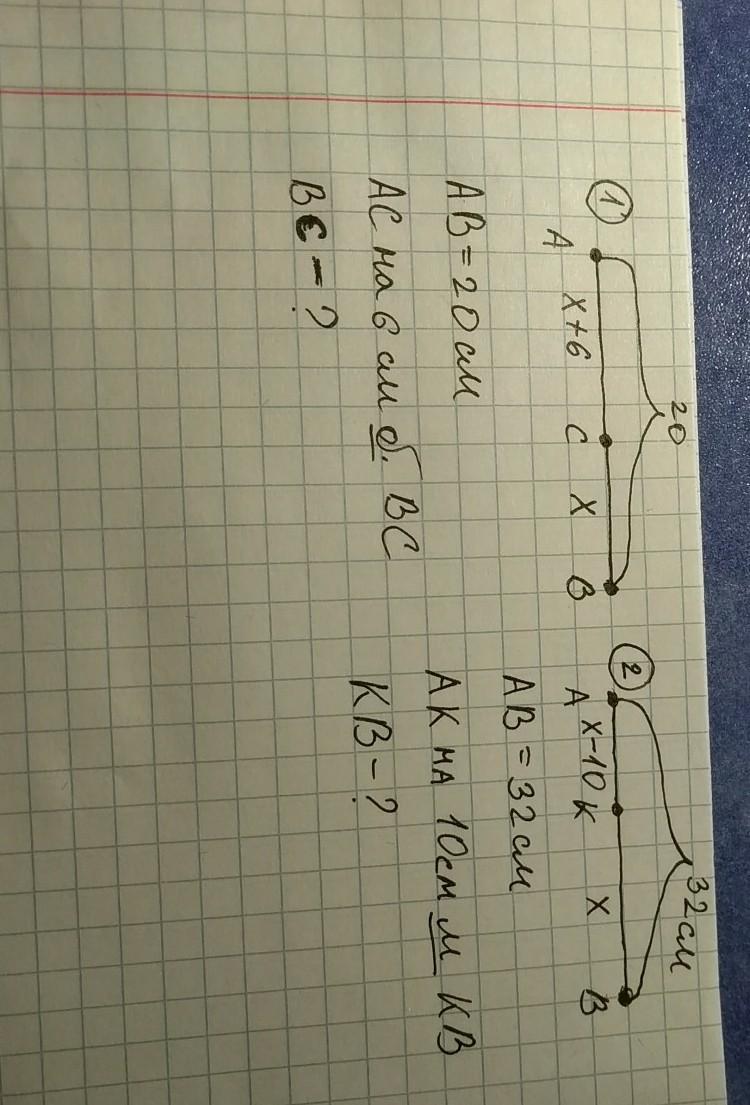 ① 20
A x+6 C x B
AB = 20 см
AC на 6 см б. BC
BC – ?
② 32 см
A x-10 K x B
AB = 32 см
AK на 10 см м KB
KB – ?